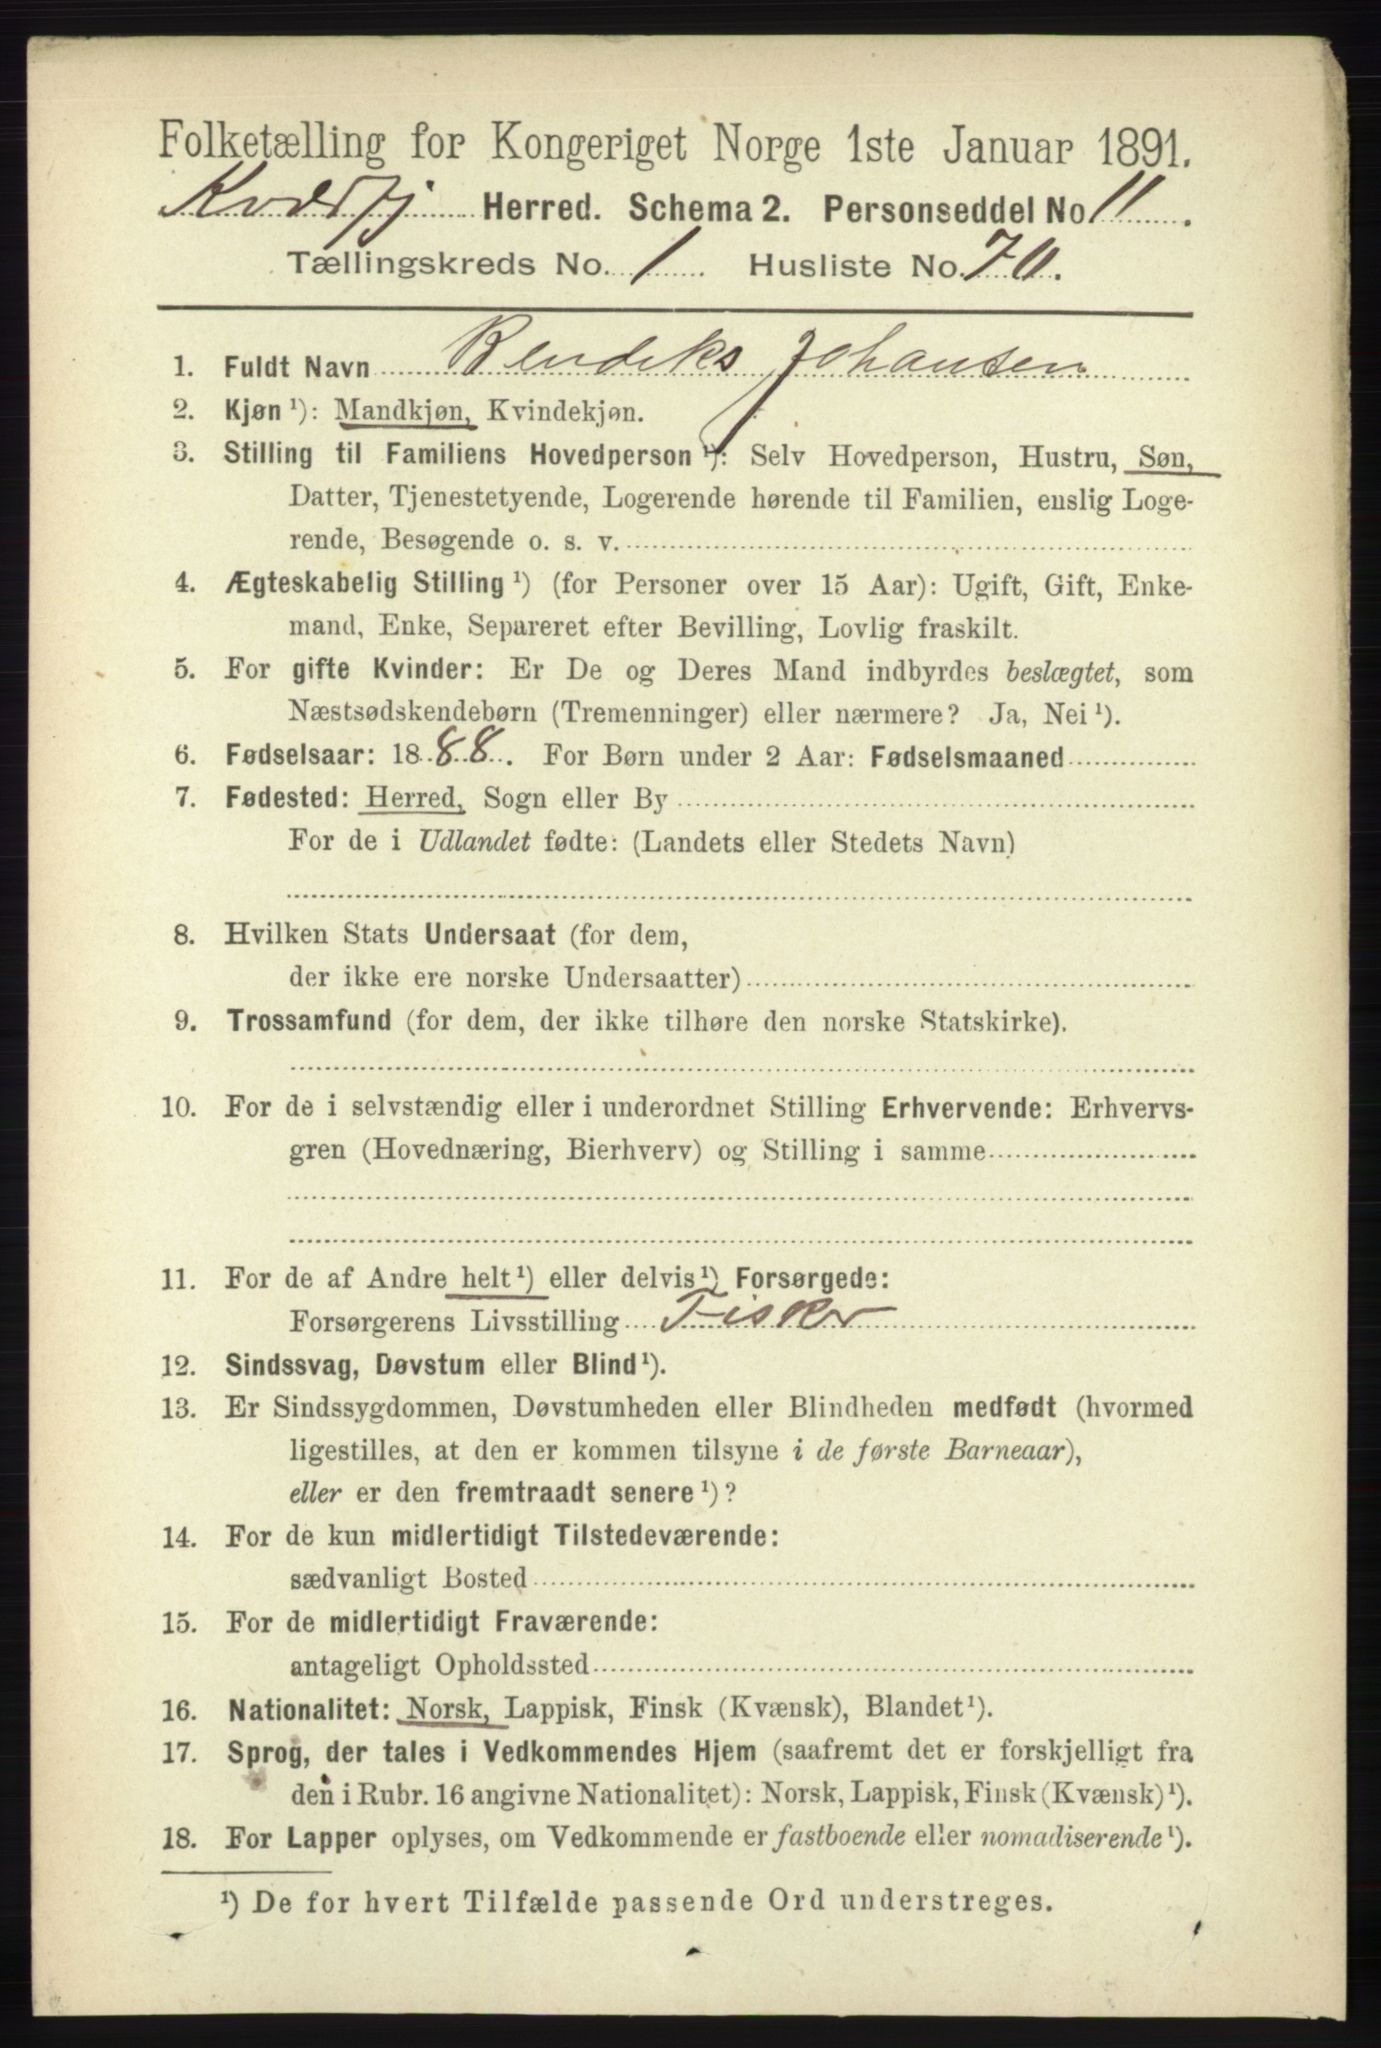 Folketælling for Kongeriget Norge 1ste Januar 1891.
Kvæfj Herred. Schema 2. Personseddel No 11.
Tællingskreds No. 1 Husliste No. 70.
1. Fuldt Navn Bendiks Johansen
2. Kjøn¹): Mandkjøn, Kvindekjøn.
3. Stilling til Familiens Hovedperson¹): Selv Hovedperson, Hustru, Søn,
Datter, Tjenestetyende, Logerende hørende til Familien, enslig Loge-
rende, Besøgende o. s. v.
4. Ægteskabelig Stilling¹) (for Personer over 15 Aar): Ugift, Gift, Enke-
mand, Enke, Separeret efter Bevilling, Lovlig fraskilt.
5. For gifte Kvinder: Er De og Deres Mand indbyrdes beslægtet, som
Næstsødskendebørn (Tremenninger) eller nærmere? Ja, Nei¹).
6. Fødselsaar: 1888. For Børn under 2 Aar: Fødselsmaaned
7. Fødested: Herred, Sogn eller By
For de i Udlandet fødte: (Landets eller Stedets Navn)
8. Hvilken Stats Undersaat (for dem,
der ikke ere norske Undersaatter)
9. Trossamfund (for dem, der ikke tilhøre den norske Statskirke).
10. For de i selvstændig eller i underordnet Stilling Erhvervende: Erhvervs-
gren (Hovednæring, Bierhverv) og Stilling i samme
11. For de af Andre helt¹) eller delvis¹) Forsørgede:
Forsørgerens Livsstilling Fisker
12. Sindssvag, Døvstum eller Blind¹).
13. Er Sindssygdommen, Døvstumheden eller Blindheden medfødt (hvormed
ligestilles, at den er kommen tilsyne i de første Barneaar),
eller er den fremtraadt senere¹)?
14. For de kun midlertidigt Tilstedeværende:
sædvanligt Bosted
15. For de midlertidigt Fraværende:
antageligt Opholdssted
16. Nationalitet: Norsk, Lappisk, Finsk (Kvænsk), Blandet¹).
17. Sprog, der tales i Vedkommendes Hjem (saafremt det er forskjelligt fra
den i Rubr. 16 angivne Nationalitet): Norsk, Lappisk, Finsk (Kvænsk)¹).
18. For Lapper oplyses, om Vedkommende er fastboende eller nomadiserende¹).
¹) De for hvert Tilfælde passende Ord understreges.